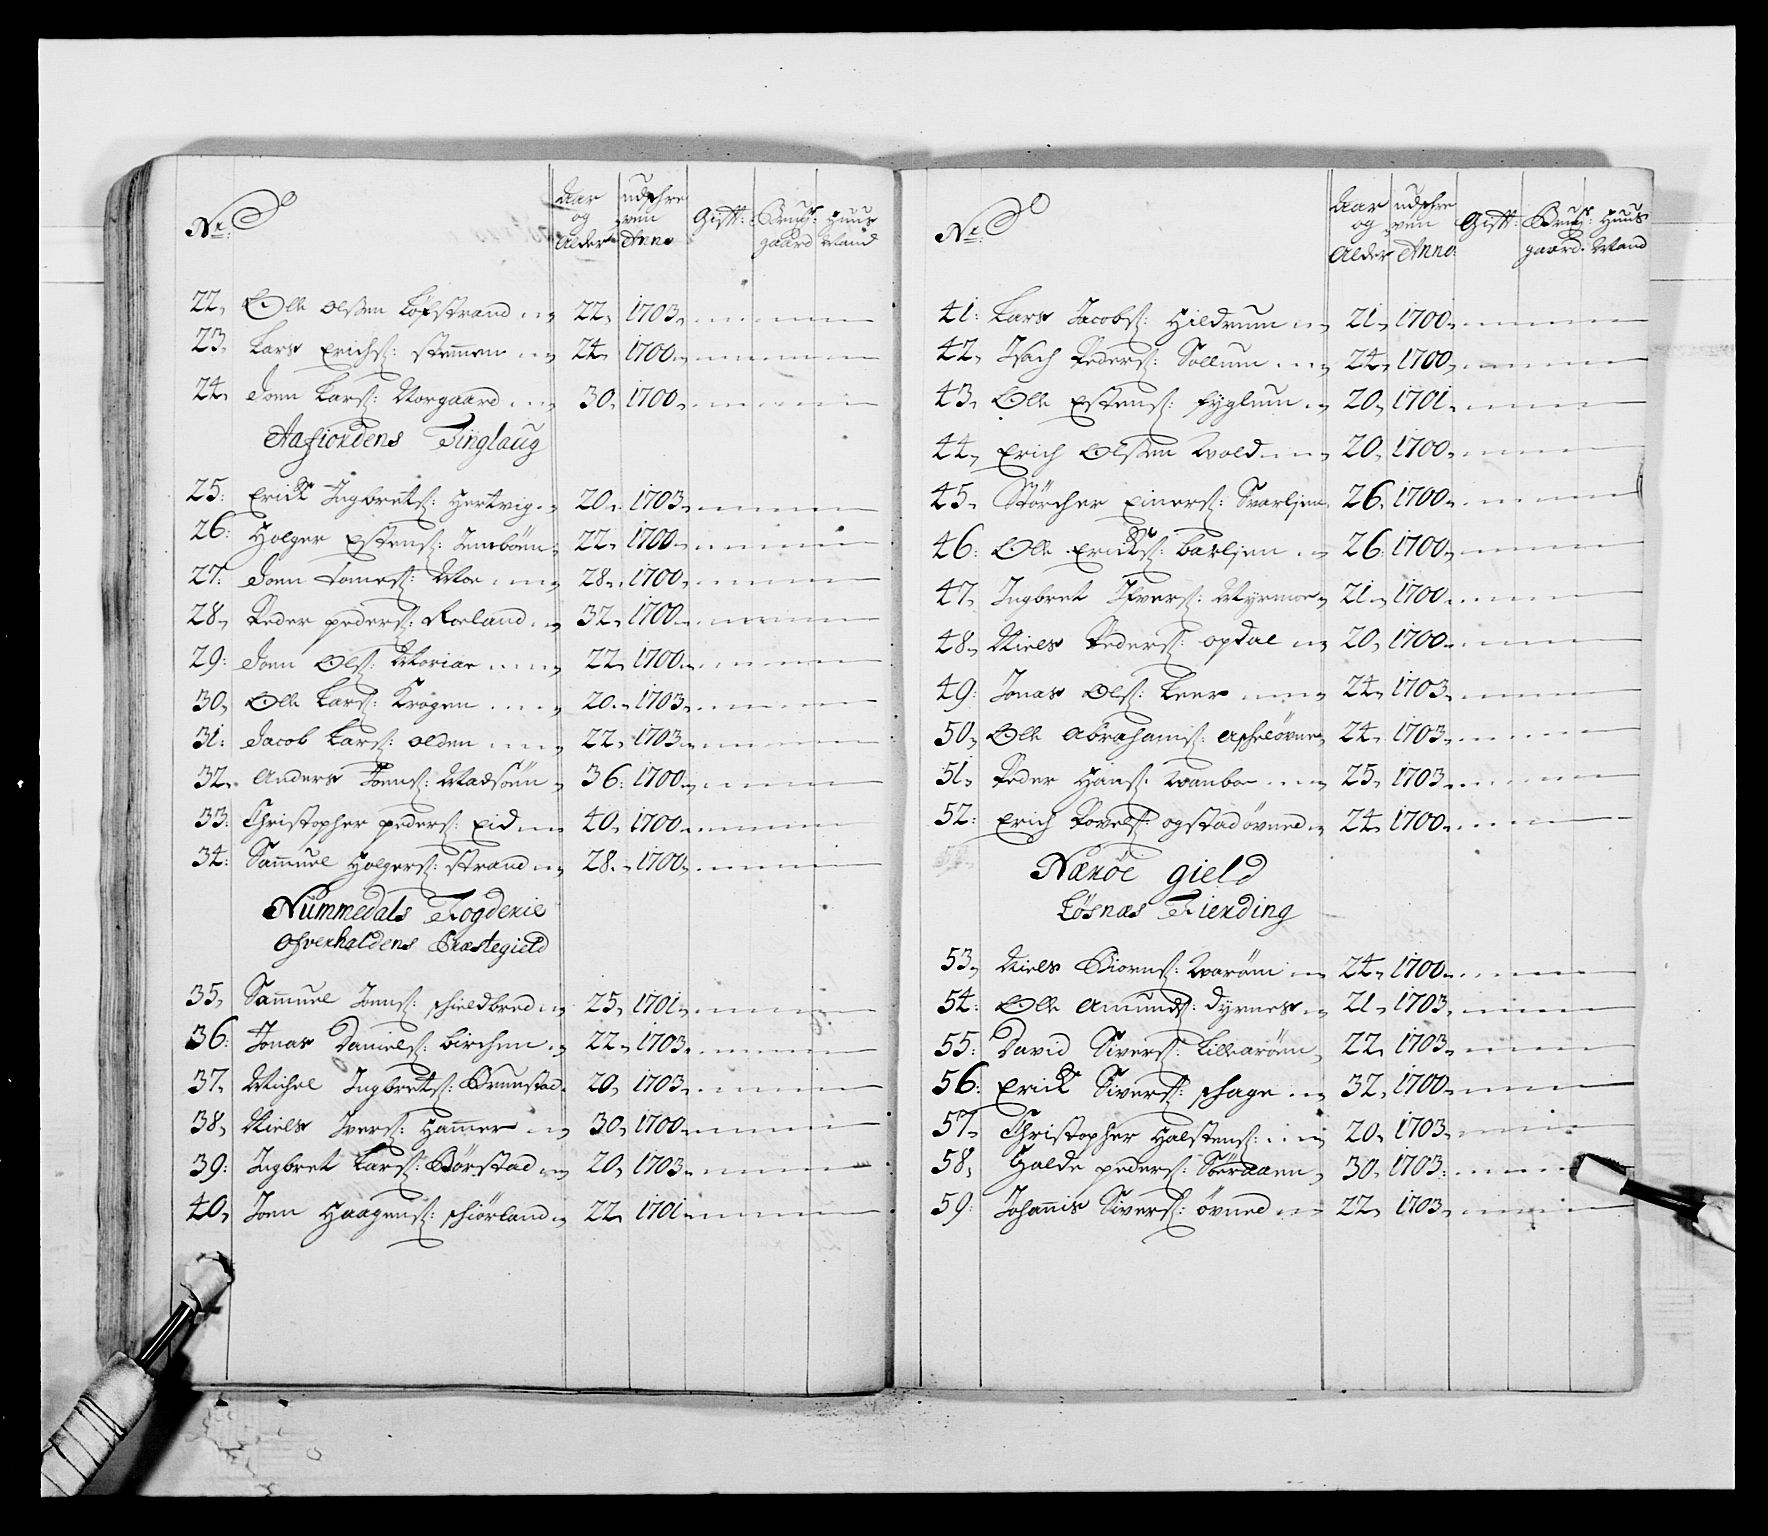 No: Aar og Alder udschreven Anno Gift: Brug: gaard Huus Mand
22, Olle Olssen Løfstrand 22, 1703
23, Lars Erichs: Stemmen 24, 1700
24, Joen Lars: Norgaard 30, 1700
Aafiordens Tinglaug
25: Erick Ingbrets: Hertvig 20, 1703
26: Holger Estens: 22, 1700
27: Joen Moe 28, 1700
28, Peder peders: Roeland 32, 1700
29: Joen Ols: 22, 1700
30, Olle Lars: Krogen 20, 1703
31: Jacob Lars: Olden 22, 1703
32, Anders Joens: Madsöen 36: 1700
33: Christopher peders: Eid 40, 1700
34: Sammuel Holgers: Strand 28, 1700
Nummedals Fogderie
Ofverhaldens Præstegield
35, Sammuel Joens: Schieldbred 25, 1701
36: Jonas Daniels: Birchem 22, 1703
37, Michel Ingbrets: Brunstad 20, 1703
38, Niels Ivers: Hammer 30, 1700
39: Ingbret Lars: Börstad 20, 1703
40, Joen Haagens: Schiörland 22, 1701
No: Aar og Alder udschreven Anno: Gift: Brug: gaard Huus Mand
41: Lars Jacobs: Hildrum 21, 1700
42, Isach Peders: Sollum 24, 1700
43, Olle Estens: Fyglum 20, 1701
44, Erich Olssen Wold 20, 1700
45, Störcher Einers: Svarljen 26, 1700
46: Olle Ericks: Barljen 26: 1700
47, Ingbret Ifvers: Myrmoe 21, 1700
48, Niels Peders: Opdal 20, 1700
49: Jonas Ols: Leer 24, 1703
50, Olle Abrahams: 24, 1703
51, Peder Hans: Wanboe 25, 1703
52: Erich Povels: 24, 1700
Nærøe gield
Løsnæs Fierding
53, Niels Biørns: Warøen 24, 1700
54: Olle Amunds: Dyrnes 21, 1703
55: David Sivers: Lillearöen 22, 1703
56: Erick Sivers: Schage 32, 1700
57, Christopher Halstens: 20, 1703
58, Halde peders: Söeraaen 30, 1703
59: Johannis Sivers: övned 22, 1703